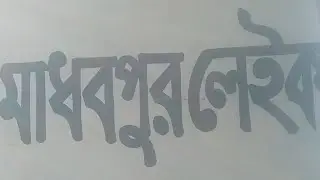 মাধবপুর লেইক